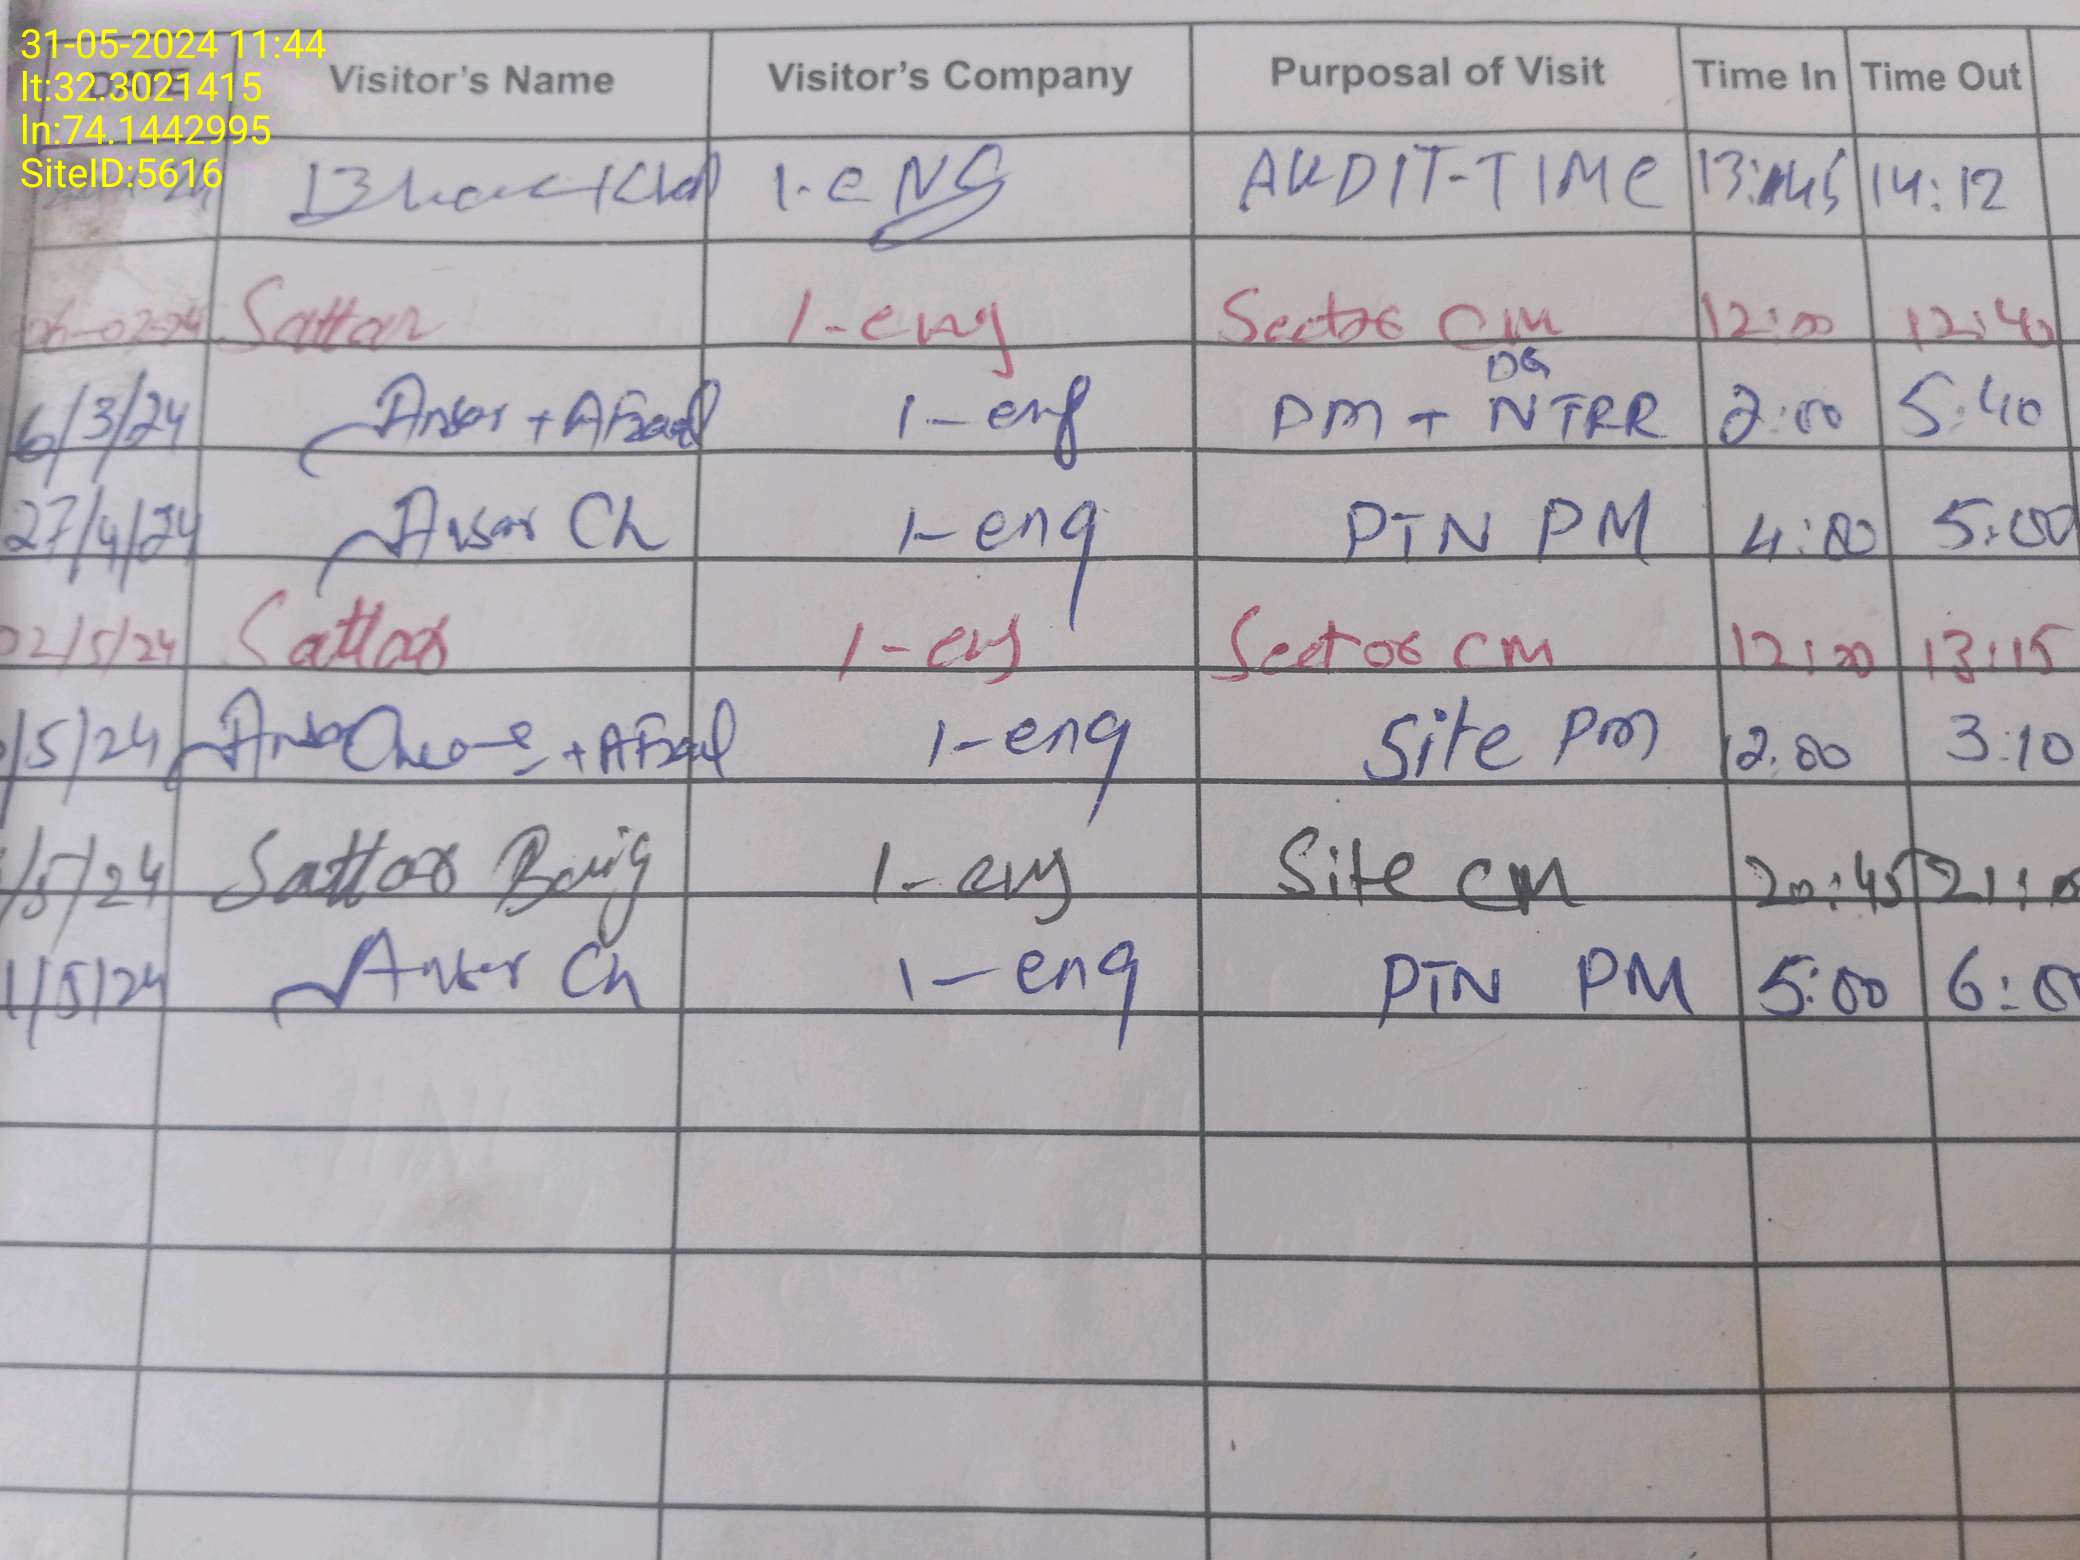 31-05-2024 11:44
lt:32.3021415
ln:74.1442995
SiteID:5616
DATE Visitor's Name Visitor's Company Purposal of Visit Time In Time Out
1-eNG AUDIT-TIME 13:45 14:12
06-02-24 Sattar 1-eng Sector CM 12:00 12:40
DG
6/3/24 Anser + AFzaal 1-eng PM + NTRR 2:00 5:40
27/4/24 Ansar Ch 1-eng PTN PM 4:00 5:00
02/5/24 Sattar 1-eng Sector CM 12:00 13:15
/5/24 + AFzaal 1-eng Site PM 12:00 3:10
/5/24 Sattar Baig 1-eng Site CM 20:45 21:
1/5/24 Anser Ch 1-eng PTN PM 5:00 6:0